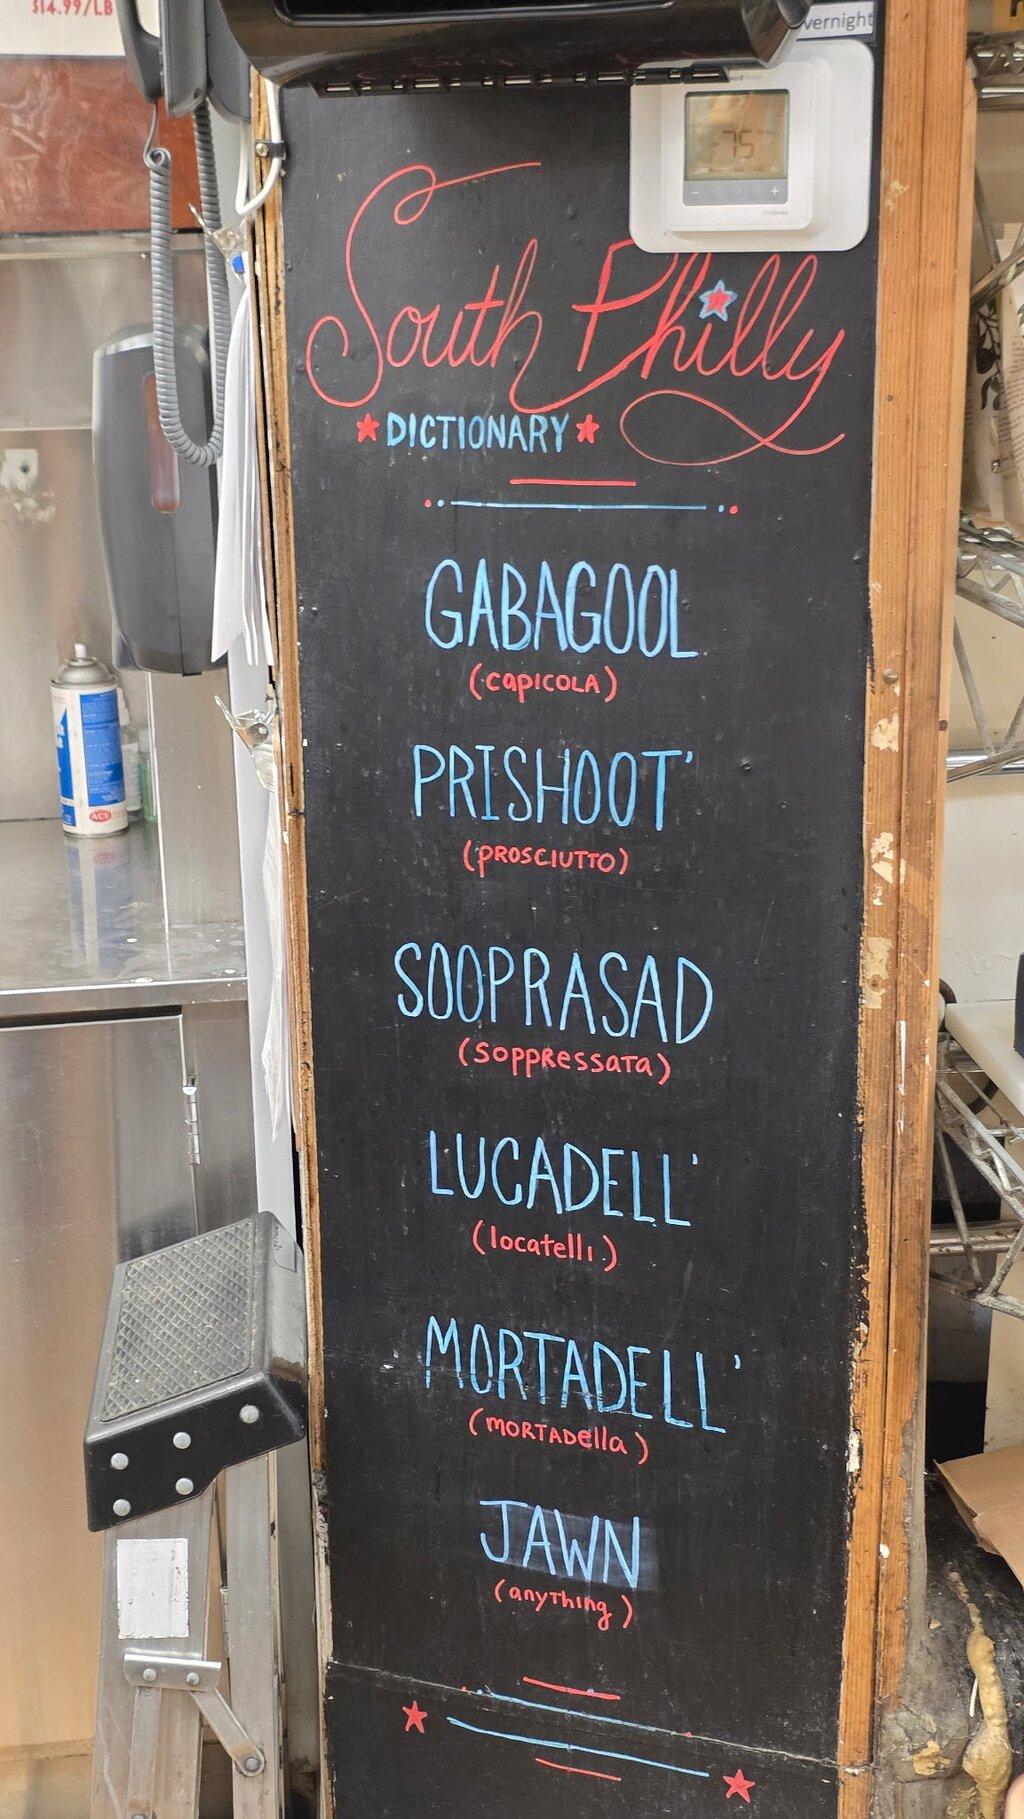 $14.99/LB
vernight
75
South Philly
DICTIONARY
GABAGOOL
(CAPICOLA)
PRISHOOT'
(PROSCIUTTO)
SOOPRASAD
(SOPPRESSATA)
LUCADELL'
(locatelli)
MORTADELL'
(MORTADella)
JAWN
(anything)
ACE